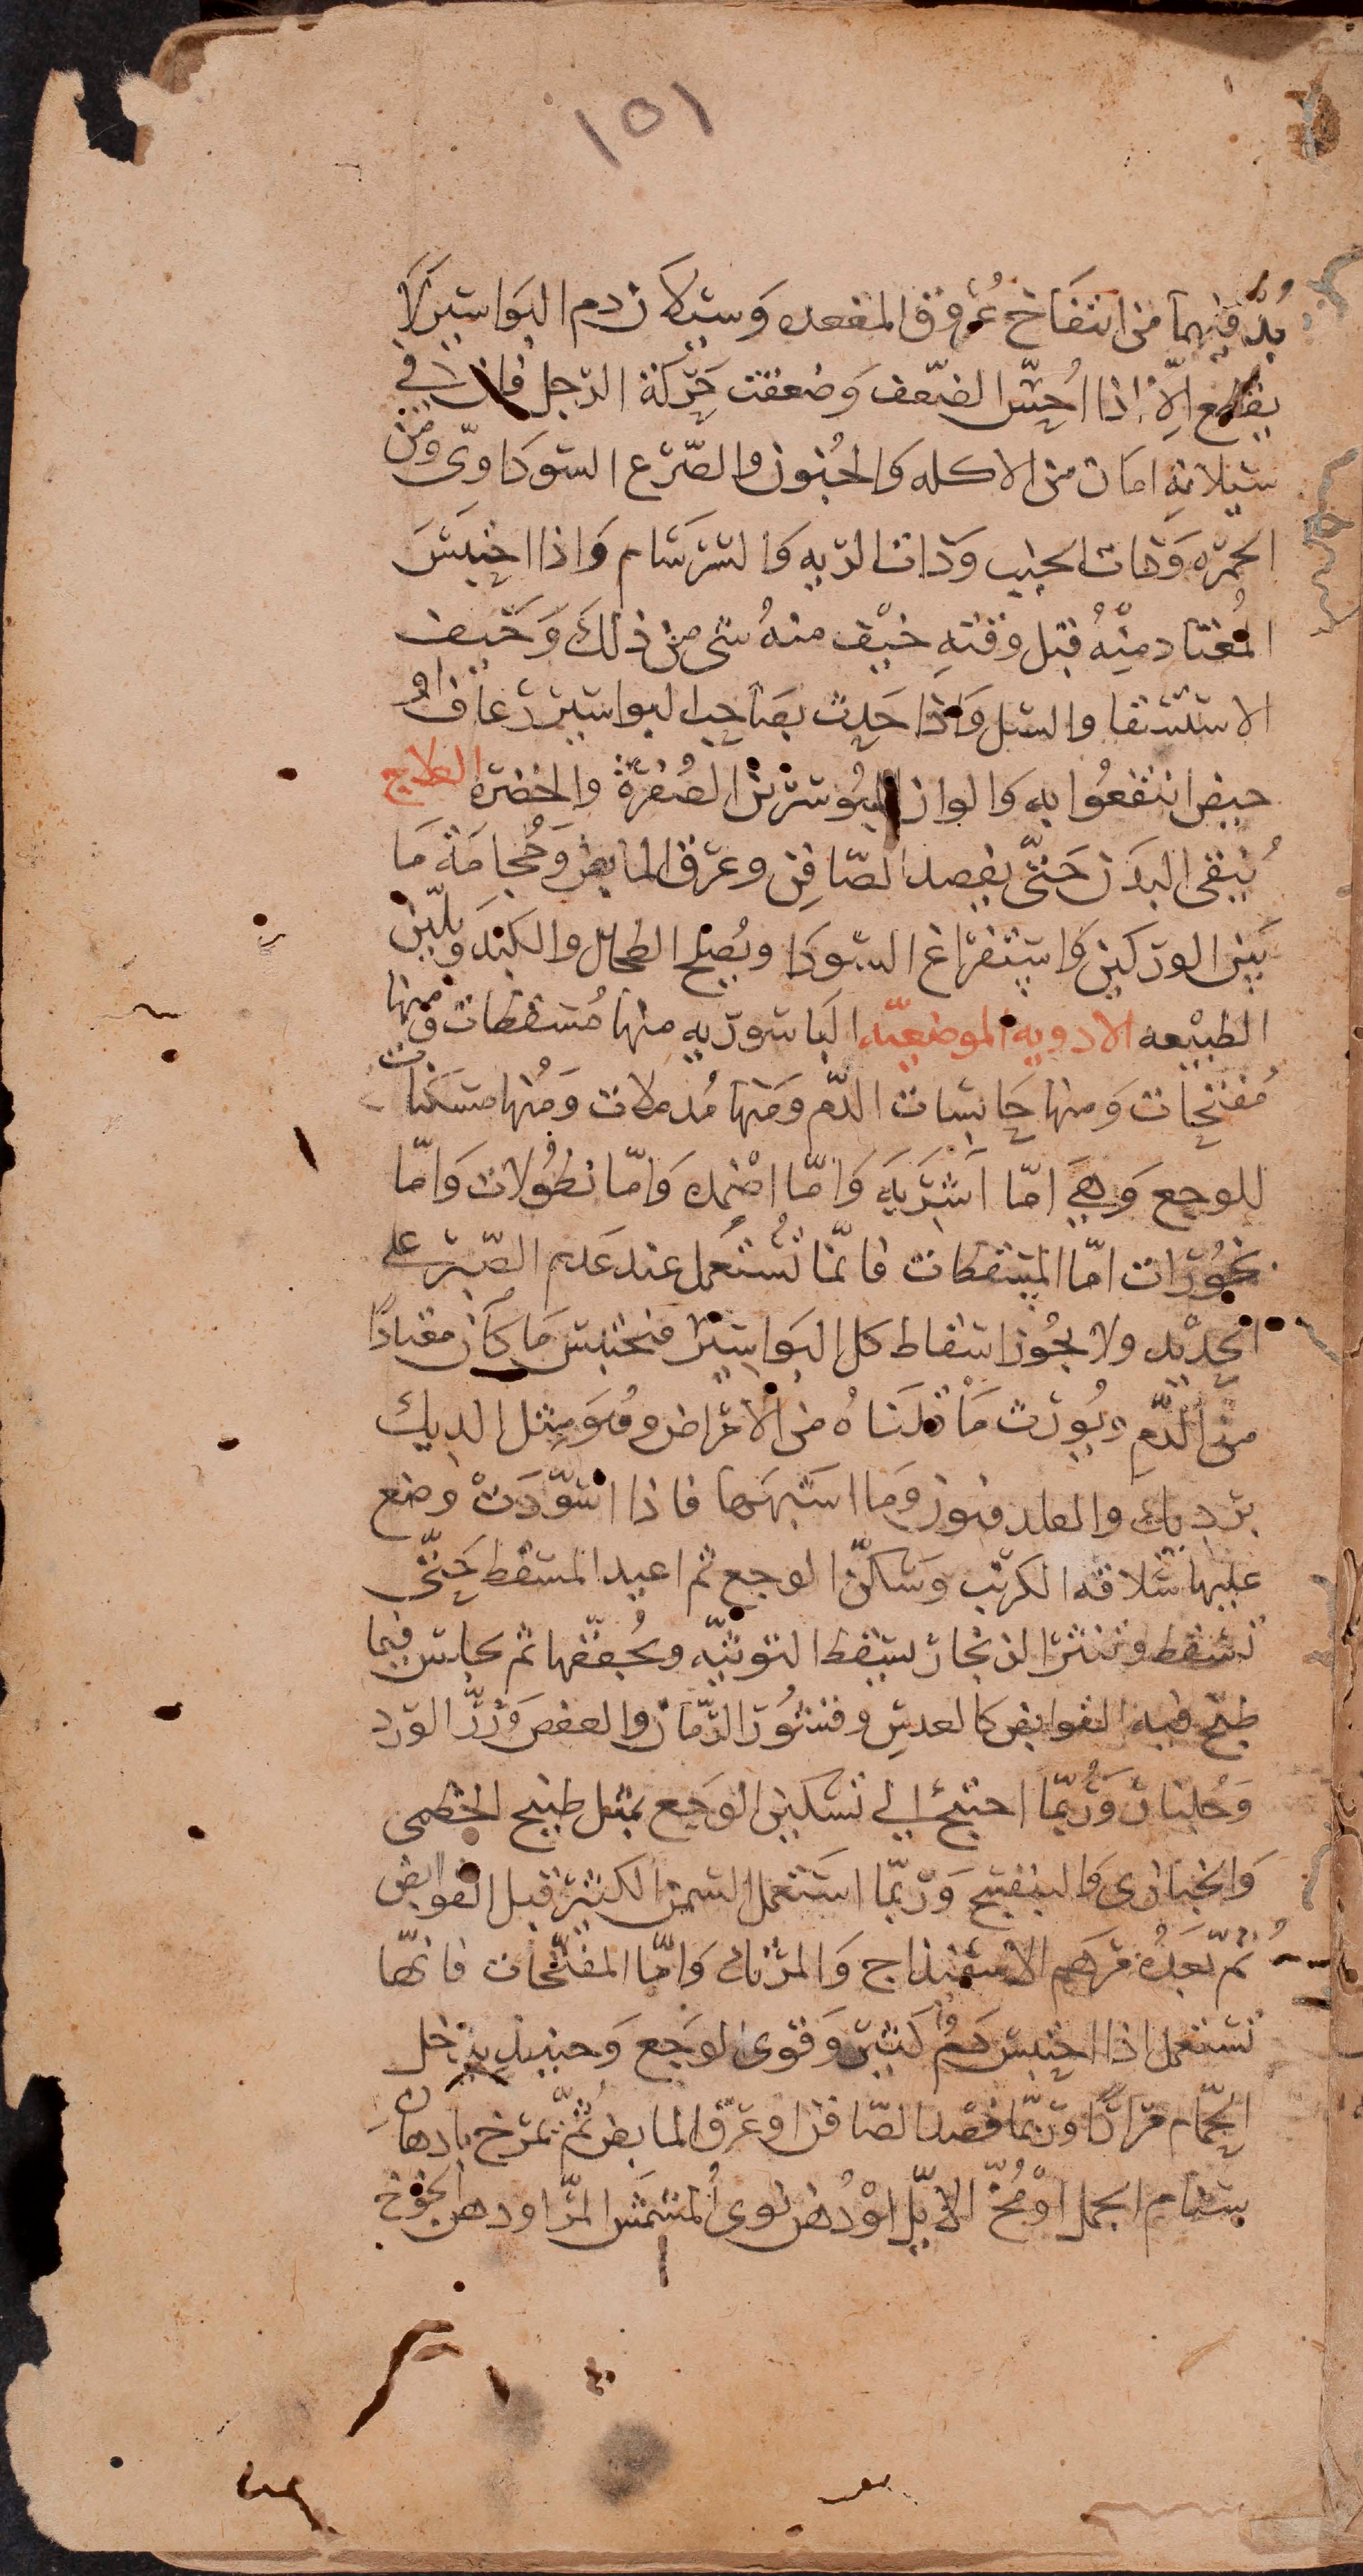 ١٥١
بُدَّ فيهما من انتفاخ عُروق المقعده وَسيلان دم البَواسير لا
يقطع إلّا اذا أُحسّ الضّعف وَضعفت حَركة الرّجل فانّ في
سَيلانهِ امان من الاكله وَالجُنون والصّرع السّودَاوىّ ومن
الحُمره وَذات الجنب وَذات الريه وَالسَرسَام وَاذا احتبَسَ
المُعتاد منْهُ قبل وقتهِ خيْف منهُ شى من ذلكَ وَخيف
الاستسْقا والسل وَاذا حَدث بصَاحب البواسير رعَاف اوْ
حيض انتفعُوا به وَالوان المبُوسرين الصُفرَة والخضره العلاج
يُنقى البدَن حَتّى بفصد الصّافِن وعرْق المابض وَحُجامَة مَا
بَين الوركين وَاستفرَاغ السّودَا ويُصلح الطحال والكبدَ ويلَيّن
الطبيْعه الادويه الموضعيّه البَاسوريه منها مُسقطات ومنها
مُفتّحات وَمنها حَابسَات الدّم وَمنها مُدملات وَمُنها مسَكّنات
للوجع وَهيَ امّا أَشرَبَه وَامّا اضْمده وَامّا نطُولات وَامّا
بخوُرَات امّا المسْقطات فانمّا تُستعمل عند عَدم الصّبر على
الحدْيد ولا يجُوز اسْقاط كل البَواسير فيحتبس مَا كَان معتادًا
منَ الدَّم ويُورث مَا قلنَاهُ من الأَمراض وهُوَ مثل الديك
بَرديك والفلدفيون وَما اشبهَها فاذا اسَّودَتْ وضع
عليها سُلاقه الكرنب وَسَكّن الوجع ثم اعيد المسقط حَتّى
تسْقط وتنثر الزنجار يسْقط التوتيّه ويُجفّفها ثم يجلس فيما
طبخ فيه القوابض كالعدسِ وقشُور الرّمان والعفص وَزِرّ الورد
وَجُلّنار وَرُبّما احتيج الي تسكين الوَجَع بمثل طبيخ الخطمى
وَالخبازى وَالبنفسج وَربّما استَعمل السمن الكثير قبل القوابض
ثُمّ بَعدُه مَرهَم الاسْفيذاج وَالمَرتك وَامّا المفتّحات فانّها
تستعمل اذا احتبس دمٌ كَثير وَقوى الوَجع وَحينيذ يدخل
الحَّمام مرَارًا وَربّما فصد الصّافن او عرق المابض ثُمّ يمرّخ بادهانِ
سنَام الجمل اوْ مُخّ الايّل اوْ دُهن نوى المشمش المرّ او دهن الخَوخ